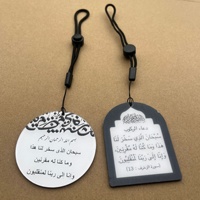 بسم الله الرحمن الرحيم
سبحان الذي سخر لنا هذا
وما كنا له مقرنين
وإنا إلى ربنا لمنقلبون
دعاء الركوب
سبحان الذي سخر لنا هذا
وما كنا له مقرنين
وإنا إلى ربنا لمنقلبون